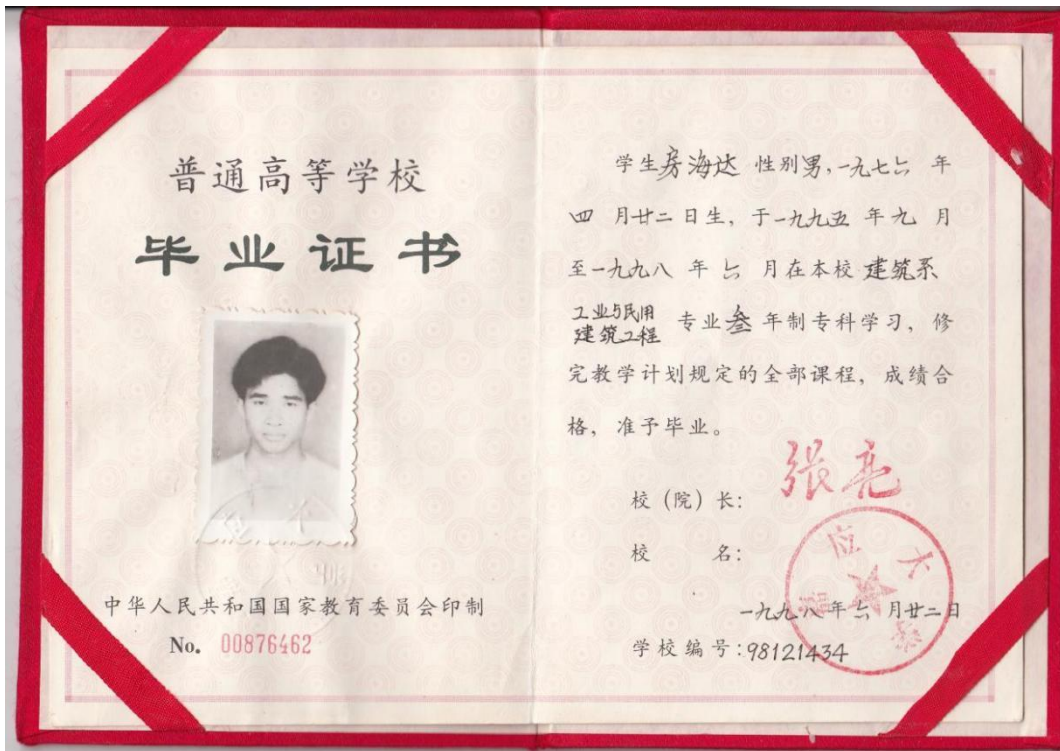 普通高等学校
毕业证书
中华人民共和国国家教育委员会印制
No. 00876462
学生房海达 性别男,一九七六 年
四 月廿二日生, 于一九九五 年九 月
至一九九八 年六 月在本校 建筑系
工业与民用
建筑工程 专业叁 年制专科学习, 修
完教学计划规定的全部课程, 成绩合
格, 准予毕业。
校 (院) 长: 张亮
校 名:
一九九八年六月廿二日
学校编号:98121434